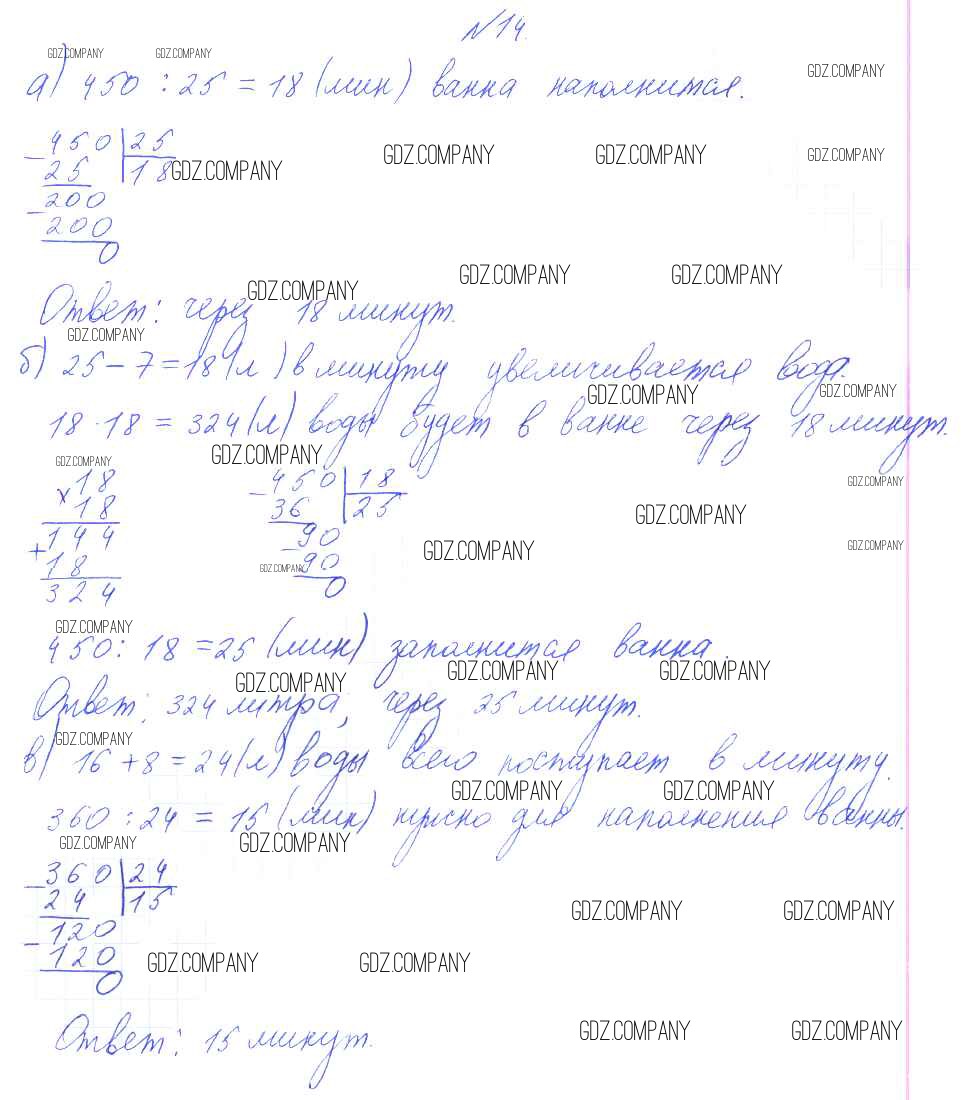 №14.
GDZ.COMPANY GDZ.COMPANY GDZ.COMPANY
а) 450 : 25 = 18 (мин) ванна наполнится.
450 | 25
GDZ.COMPANY GDZ.COMPANY GDZ.COMPANY
25 | 18 GDZ.COMPANY
200
200
0
GDZ.COMPANY GDZ.COMPANY GDZ.COMPANY
Ответ: через 18 минут.
GDZ.COMPANY
б) 25 - 7 = 18 (л) в минуту увеличивается вода.
GDZ.COMPANY GDZ.COMPANY
18 · 18 = 324 (л) воды будет в ванне через 18 минут.
GDZ.COMPANY GDZ.COMPANY
× 18 - 450 | 18 GDZ.COMPANY
18 36 | 25 GDZ.COMPANY
+ 144 - 90 GDZ.COMPANY GDZ.COMPANY
18 GDZ.COMPANY 90
324 0
GDZ.COMPANY
450 : 18 = 25 (мин) заполнится ванна.
GDZ.COMPANY GDZ.COMPANY GDZ.COMPANY
Ответ: 324 литра, через 25 минут.
GDZ.COMPANY
в) 16 + 8 = 24 (л) воды всего поступает в минуту.
GDZ.COMPANY GDZ.COMPANY
360 : 24 = 15 (мин) нужно для наполнения ванны.
GDZ.COMPANY GDZ.COMPANY
- 360 | 24
24 | 15 GDZ.COMPANY GDZ.COMPANY
- 120
120 GDZ.COMPANY GDZ.COMPANY
0
Ответ: 15 минут.
GDZ.COMPANY GDZ.COMPANY